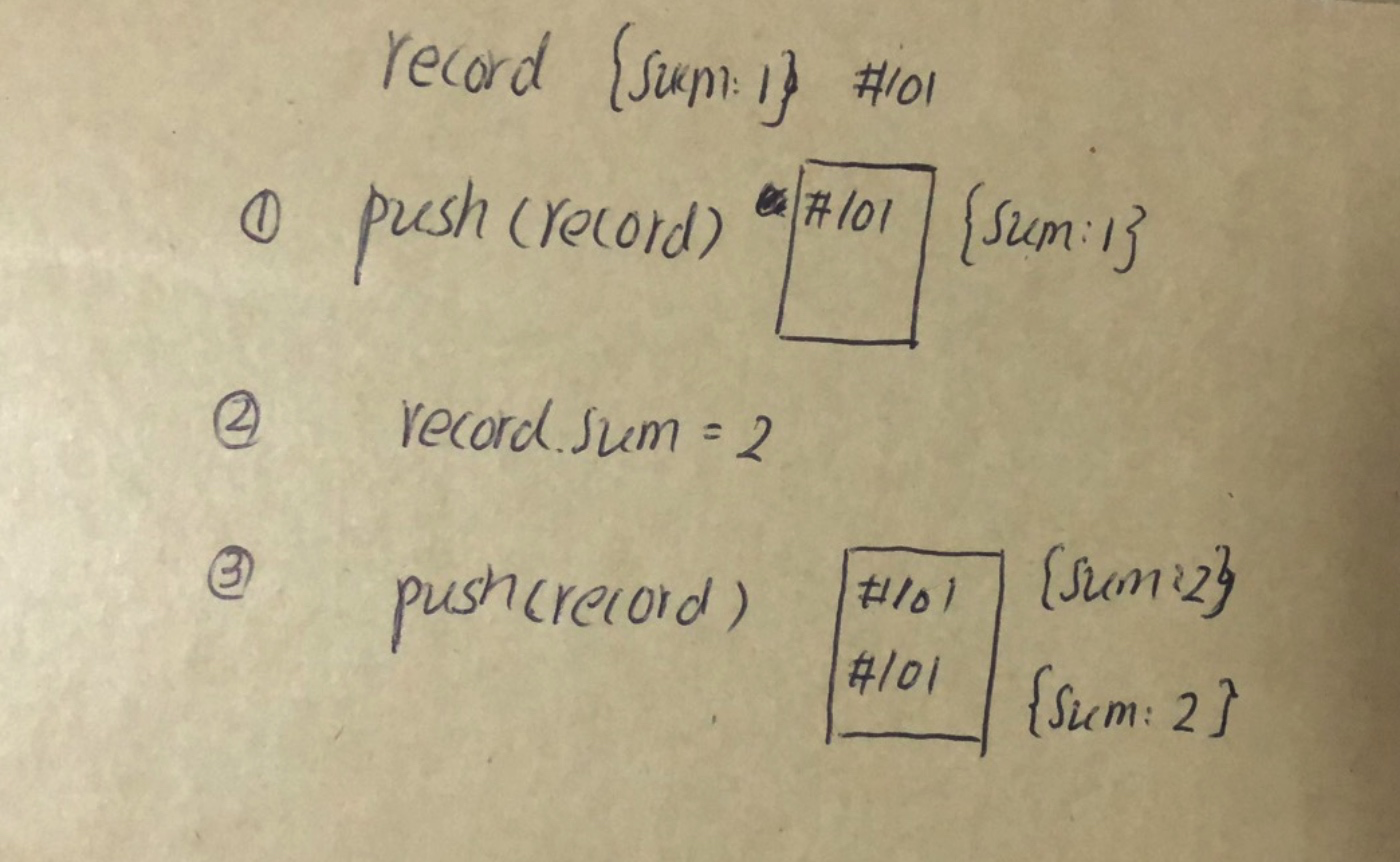 record {sum: 1} #101
① push (record) #101 {sum: 1}
② record.sum = 2
③ push(record) #101 {sum: 2}
#101 {sum: 2}